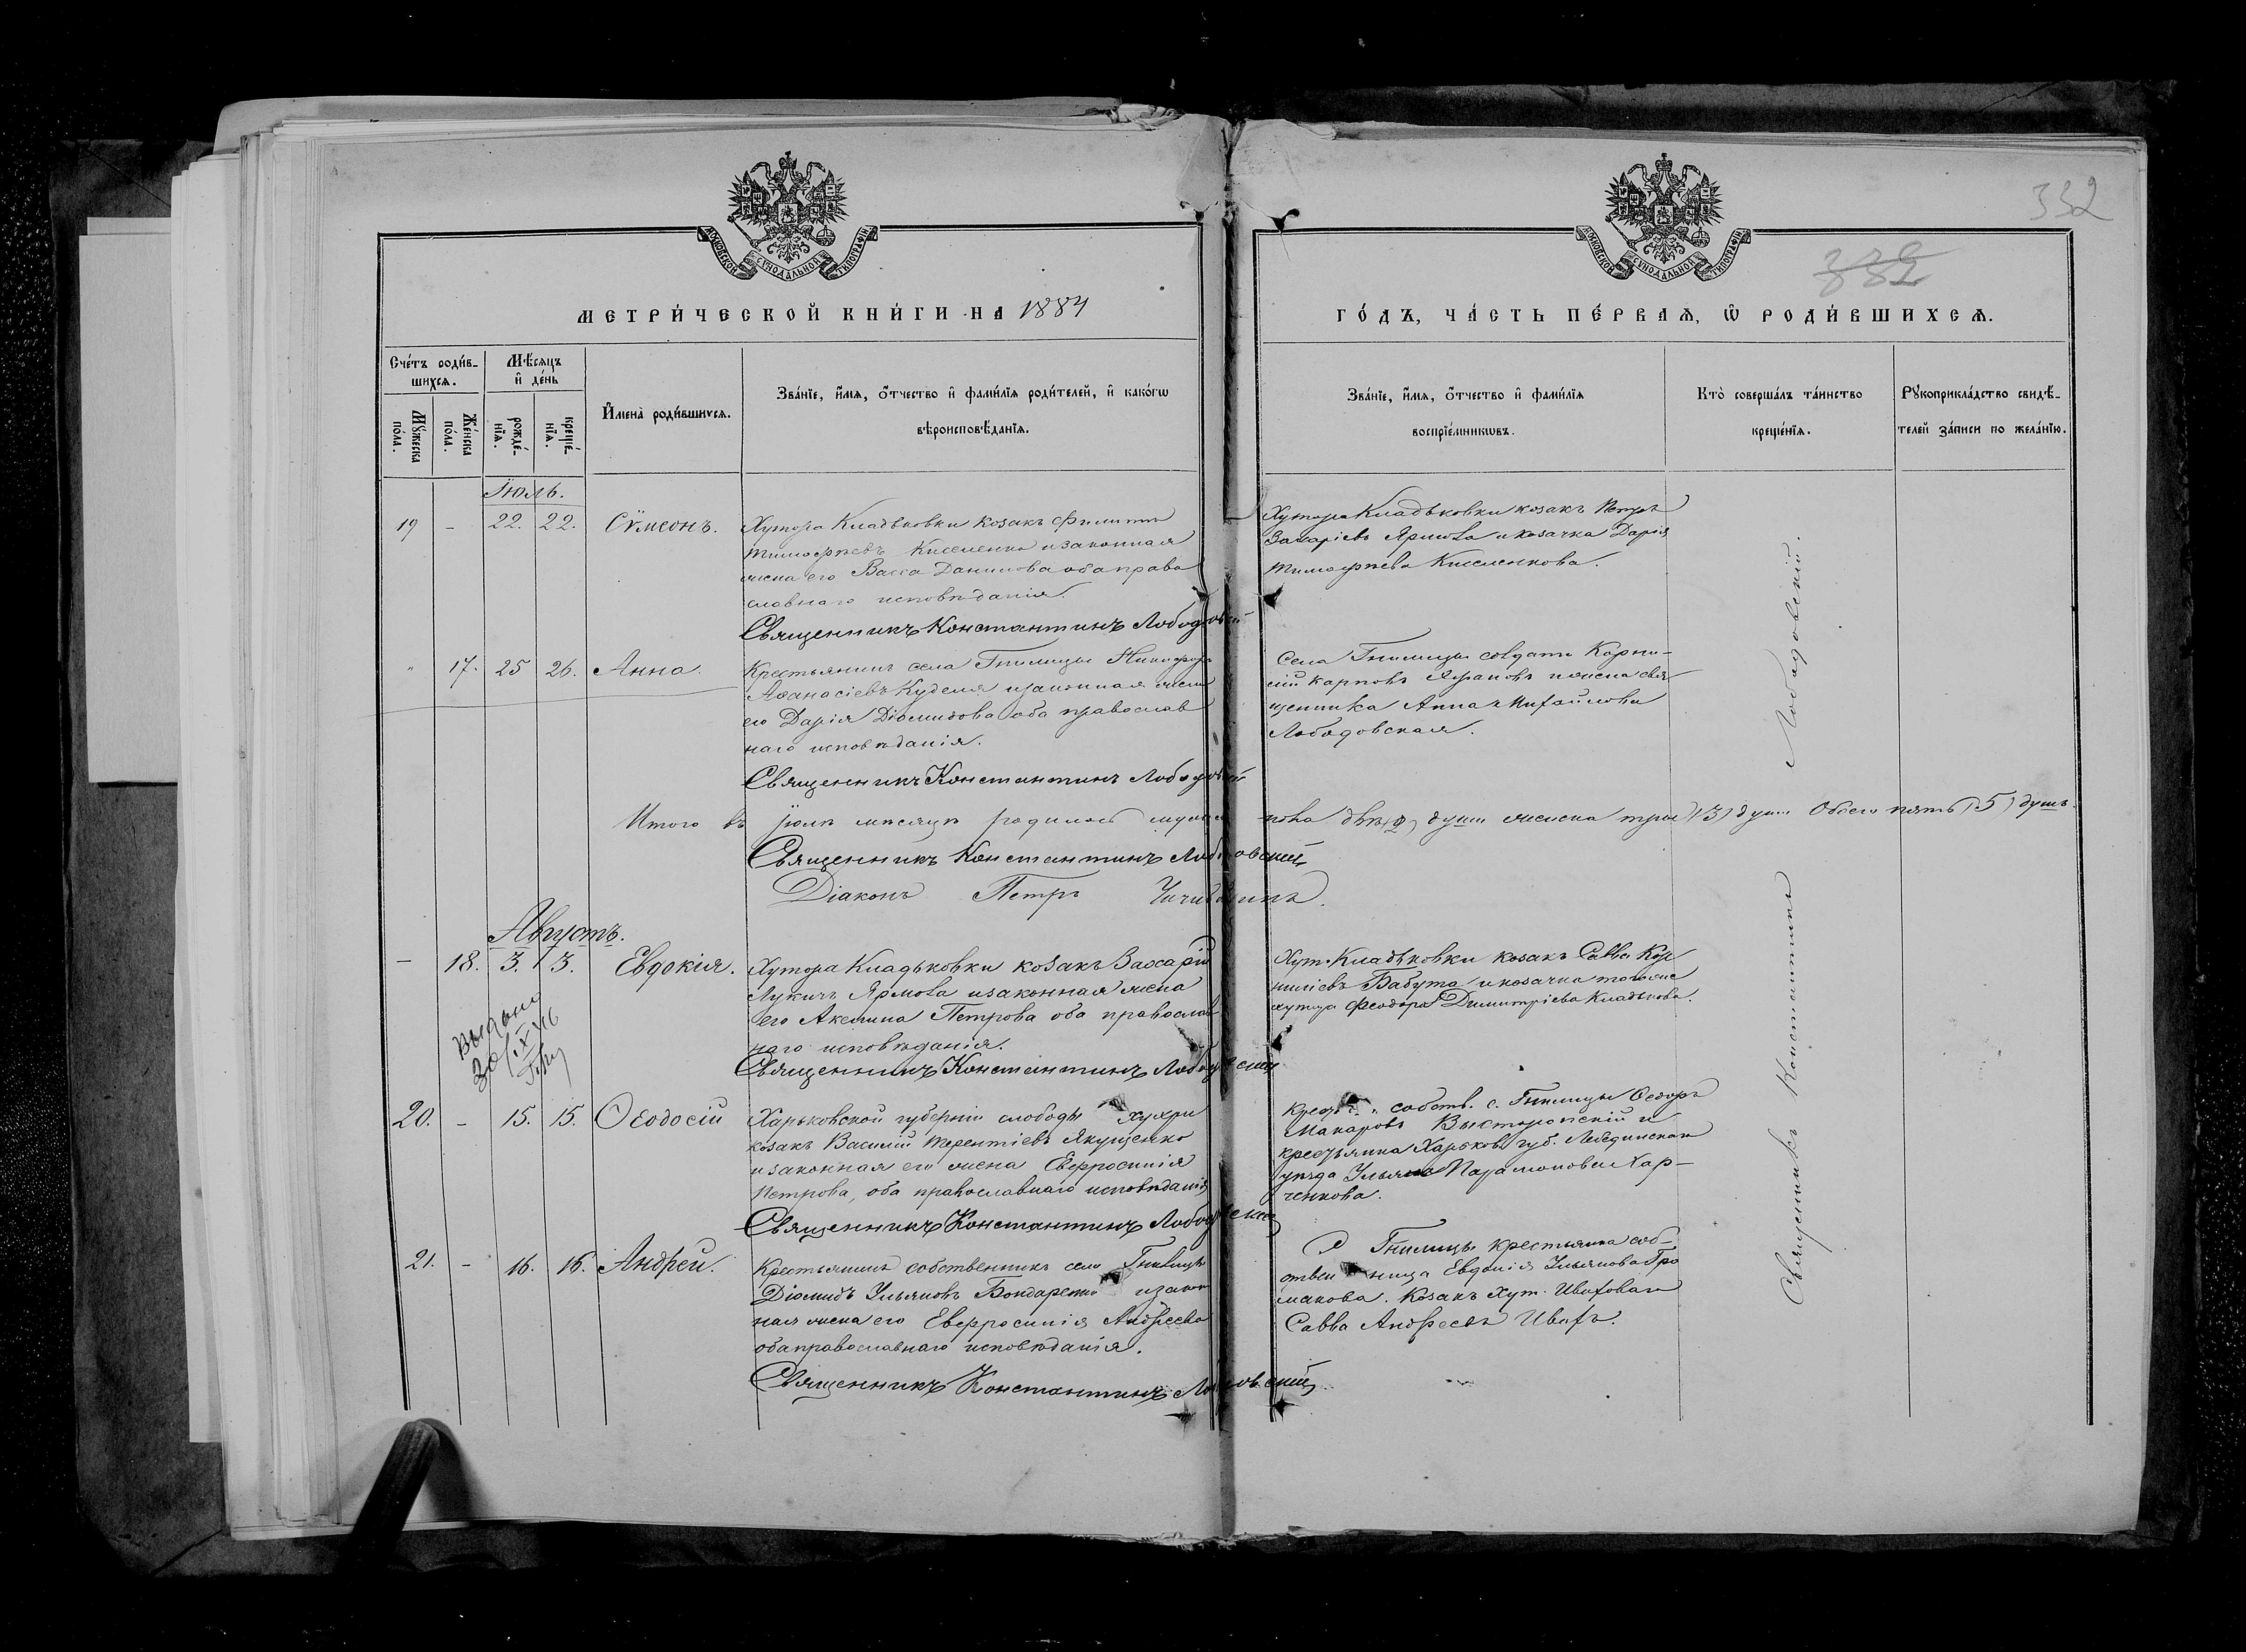 332
332
МОСКОВСКОЙ СѴНОДАЛЬНОЙ ТИПОГРАФІИ
МОСКОВСКОЙ СѴНОДАЛЬНОЙ ТИПОГРАФІИ
МЕТРИ́ЧЕСКОЙ КНИ́ГИ НА 1884
ГО́ДЪ, ЧА́СТЬ ПЕ́РВАѦ, Ѿ РОДИ́ВШИХСѦ.
Сче́тъ роди́в-
шихсѧ.
Мѣ́сѧцъ
и҆ де́нь
Мꙋ́жеска
по́ла.
Же́нска
по́ла.
рожде́-
нїѧ.
креще́-
нїѧ.
И҆мена̀ роди́вшихсѧ.
Зва́нїе, и҆́мѧ, ѻ҆́тчество и҆ фами́лїѧ роди́телей, и҆ како́гѡ
вѣроисповѣ́данїѧ.
Зва́нїе, и҆́мѧ, ѻ҆́тчество и҆ фами́лїѧ
воспрїе́мникѡвъ.
Кто̀ соверша́лъ та́инство
креще́нїѧ.
Рꙋкоприкла́дство свидѣ́-
телей за́писи по жела́нїю.
Іюль.
19 - 22. 22. Сѵмеонъ.
Хутора Кладьковки козакъ Филиппъ
Тимофеевъ Киселенко и законная
жена его Васса Данилова оба право
славнаго исповѣданія.
Священникъ Константинъ Лободовскій
Хутора Кладьковки козакъ Петръ
Захаріевъ Ярмола и козачка Дарія
Тимофеева Киселенкова.
" 17. 25 26. Анна.
Крестьянинъ села Гнилицы Никифоръ
Аѳанасіевъ Куделя и законная жена
его Дарія Діомидова оба православ
наго исповѣданія.
Священникъ Константинъ Лободовскій
Села Гнилицы солдатъ Корни-
лій Карповъ и жена свя
щенника Анна Михайлова
Лободовская.
Итого въ Іюлѣ мѣсяцѣ родилось мужеска пола двѣ (2) души женска три (3) души Обоего пять (5) душъ.
Священникъ Константинъ Лободовскій
Діаконъ Петръ
Августъ.
- 18. 3. 3. Евдокія.
Хутора Кладьковки козакъ Захарій
Лукичъ Ярмола и законная жена
его Акелина Петрова оба православ
наго исповѣданія.
Священникъ Константинъ Лободовскій
Хут. Кладьковки козакъ Савва Кор
ниліевъ Бабута и козачка того же
хутора Феодора Димитріева Кладькова.
Выдан
30/IX
20. - 15. 15. Ѳеодосій
Харьковской губерніи слободы
козакъ Василій Терентіевъ Якущенко
и законная его жена Евфросинія
Петрова, оба православнаго исповѣданія
Священникъ Константинъ Лободовскій
собств. с. Гнилицы Ѳедоръ
Макаровъ и
крестьянка Харьков. губ. Лебединскаго
уѣзда Ульяна Парамонова Хар-
ченкова.
21. - 16. 16. Андрей.
Крестьянинъ собственникъ села Гнилицы
Діомидъ Ульяновъ Бондаренко и закон
ная жена его Евфросинія Андреева
оба православнаго исповѣданія.
Священникъ Константинъ Лободовскій
С Гнилицы крестьянка соб-
ствен ница Евдокія Ульянова Гро
макова. Козакъ Хут.
Савва Андреевъ
Священникъ Константинъ Лободовскій.